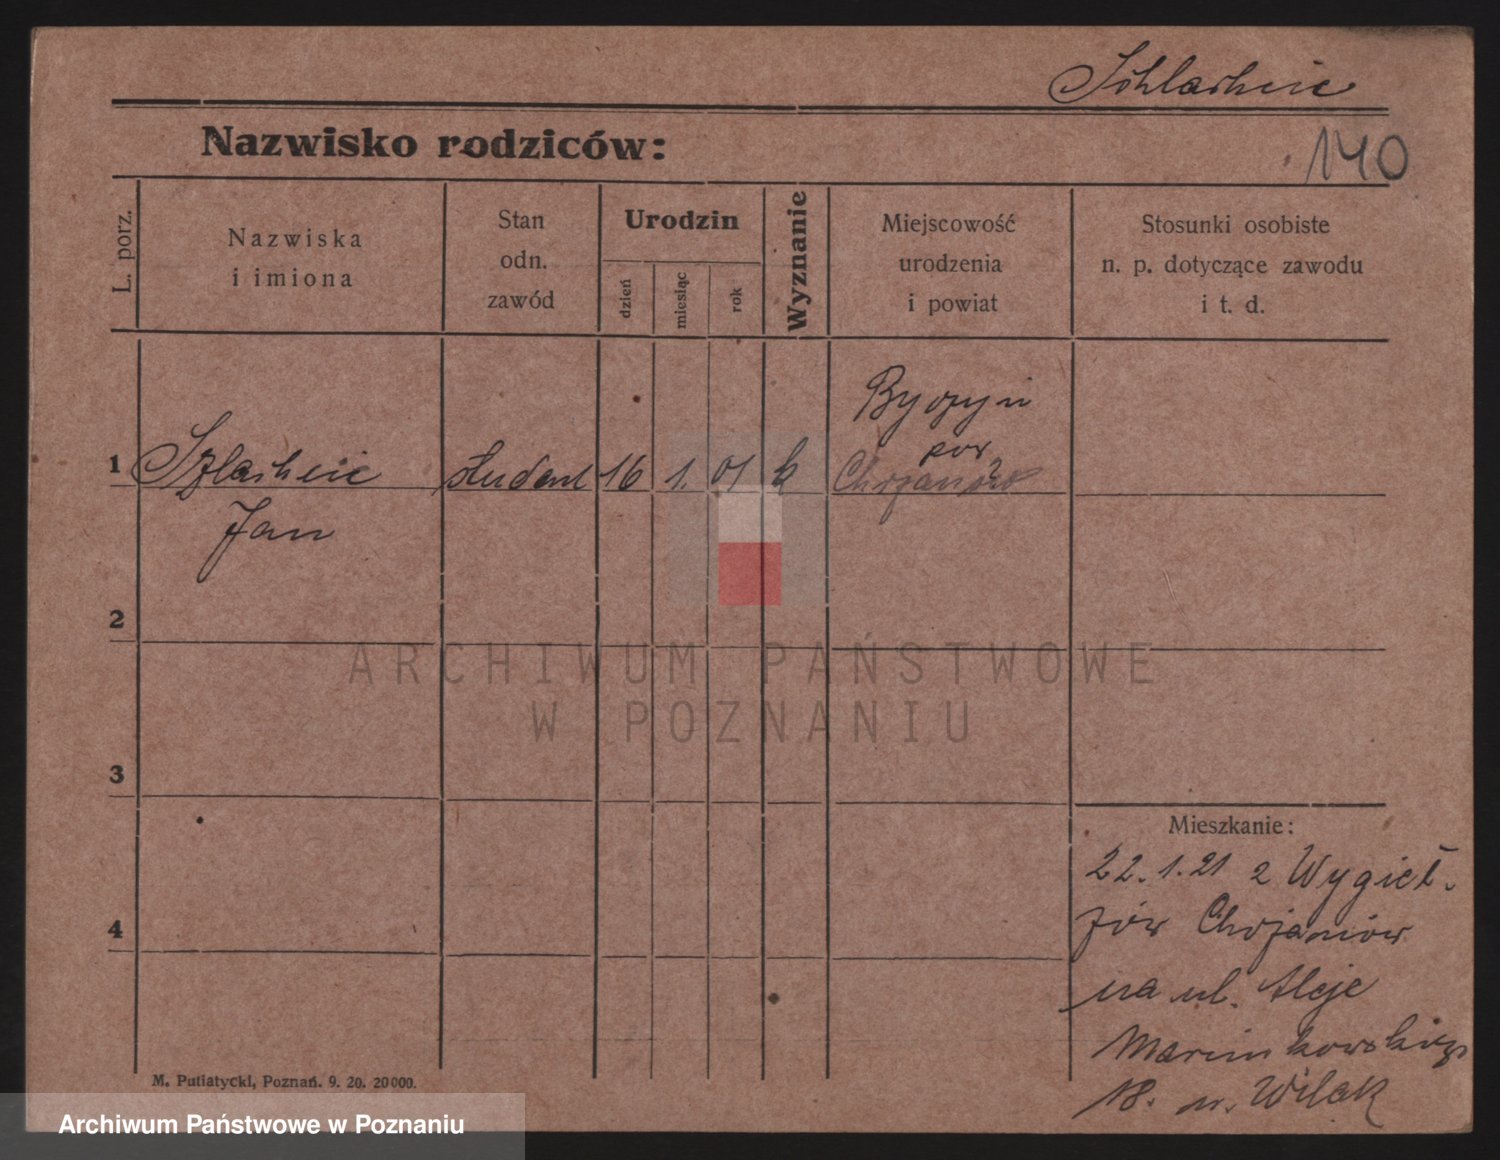 140
Nazwisko rodziców:
L. porz.
Nazwiska
i imiona
Stan
odn.
zawód
Urodzin
dzień
miesiąc
rok
Wyznanie
Miejscowość
urodzenia
i powiat
Stosunki osobiste
n. p. dotyczące zawodu
i t. d.
1
student 16 1. 01 k
pow
Jan
2
ARCHIWUM PAŃSTWOWE
W POZNANIU
3
Mieszkanie:
22.1.21 z Wygieł-
zów Chrzanów
4
na ul. Aleje
Marcinkowskiego
18. u. Wilak
M. Putiatycki, Poznań. 9. 20. 20000.
Archiwum Państwowe w Poznaniu